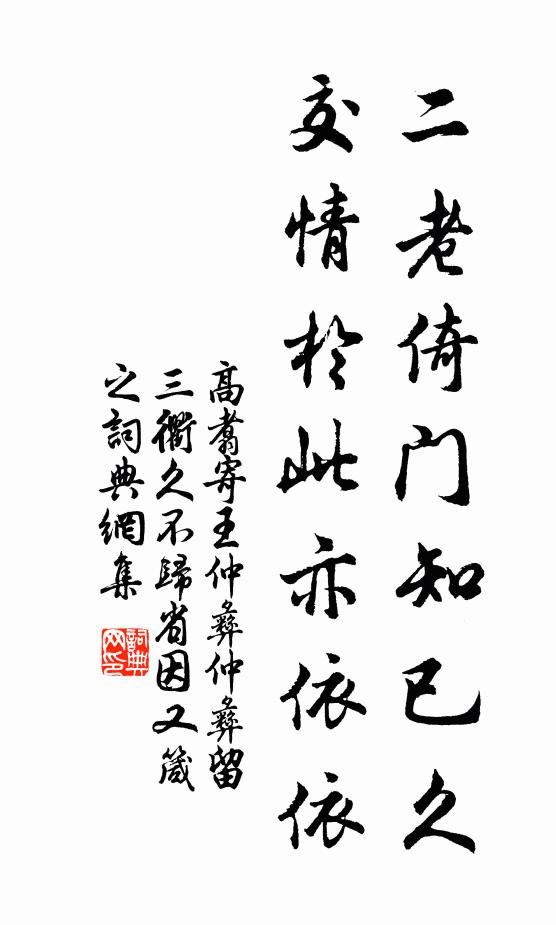 二老倚门知已久
交情於此亦依依
高翥寄王仲彝仲彝留
三衢久不歸省因又箴
之詞典網集
詞典网印